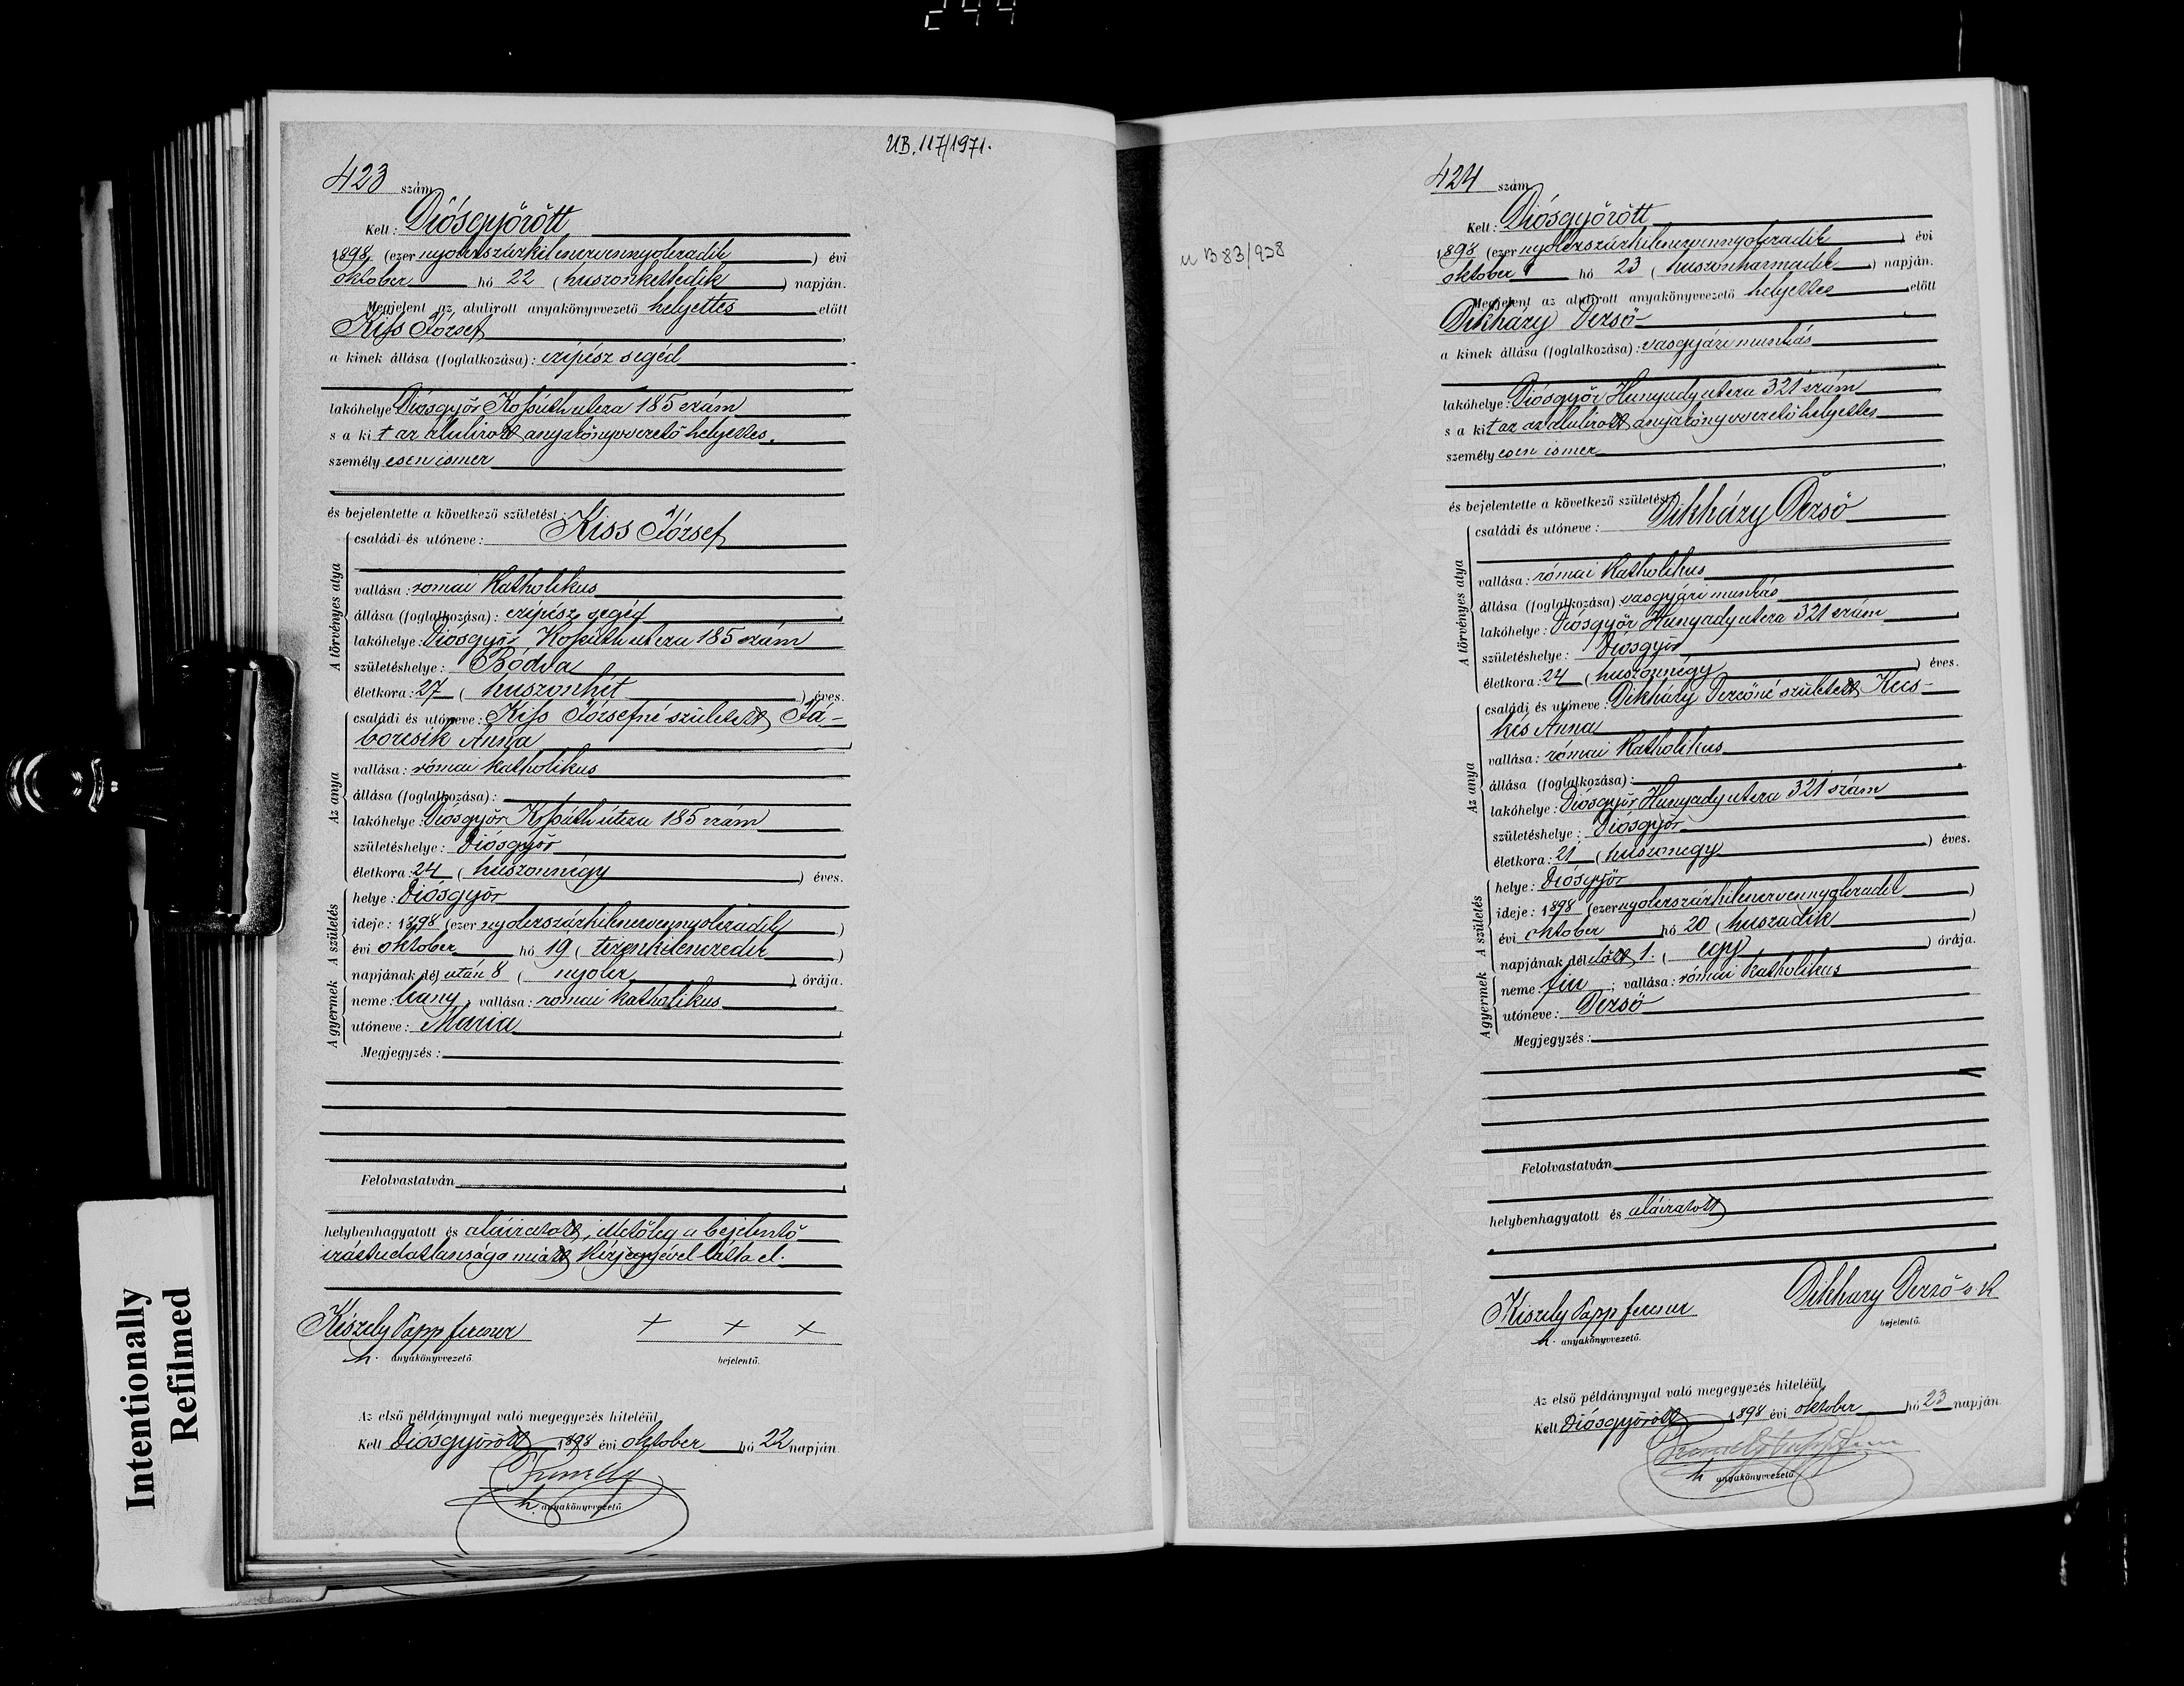 244
UB. 117/1971.
423 szám
Kelt: Diósgyőrött
1898. (ezer nyolczszázkilenczvennyolczadik) évi
oktober hó 22 (huszonkettedik) napján.
Megjelent az alulirott anyakönyvvezető helyettes előtt
Kiss József,
a kinek állása (foglalkozása): czipész segéd
lakóhelye Diósgyőr Kossúth utcza 185 szám
s a kit az alulirott anyakönyvvezető helyettes.
személyesen ismer
és bejelentette a következő születést:
A törvényes atya
családi és utóneve: Kiss József
vallása: romai katholikus
állása (foglalkozása): czipész segéd
lakóhelye: Diosgyőr Kossúth utcza 185 szám
születéshelye: Bódva
életkora: 27 (huszonhét) éves.
Az anya
családi és utóneve: Kiss Józsefné született Já-
borcsik Anna
vallása: római katholikus
állása (foglalkozása):
lakóhelye: Diósgyőr Kossúth útcza 185 szám
születéshelye: Diósgyőr
életkora: 24 (huszonnégy) éves.
A születés
helye: Diósgyőr
ideje: 1898 (ezer nyolczszázkilenczvennyolczadik)
évi oktober hó 19 (tizenkilenczedik)
napjának dél után 8 (nyolcz) órája.
A gyermek
neme: leány; vallása: romai katholikus
utóneve: Maria
Megjegyzés:
Felolvastatván
helybenhagyatott és aláiratott, illetőleg a bejelentő
irástudatlansága miatt kézjegyével látta el.
Kiszely Papp Ferencz + + +
h. anyakönyvvezető. bejelentő.
Az első példánynyal való megegyezés hiteléül
Kelt Diósgyőrött 1898 évi oktober hó 22 napján
h. anyakönyvvezető
Intentionally
Refilmed
u B 83/938
424 szám
Kelt: Diósgyőrött
1898 (ezer nyolczszázkilenczvennyolczadik) évi
oktober hó 23 (huszonharmadik) napján.
Megjelent az alulirott anyakönyvvezető helyettes előtt
Dikházy Dezső
a kinek állása (foglalkozása): vasgyári munkás
lakóhelye: Diósgyőr Hunyady utcza 321 szám
s a kit az az alulirott anyakönyvvezető helyettes
személyesen ismer
és bejelentette a következő születést:
A törvényes atya
családi és utóneve: Dikházy Dezső
vallása: római katholikus
állása (foglalkozása) vasgyári munkás
lakóhelye: Diósgyőr Hunyady utcza 321 szám
születéshelye: Diósgyőr
életkora: 24 (huszonnégy) éves.
Az anya
családi és utóneve: Dikházy Dezsőné született Kecs-
kés Anna
vallása: római katholikus
állása (foglalkozása):
lakóhelye: Diósgyőr Hunyady utcza 321 szám
születéshelye: Diósgyőr
életkora: 21 (huszonegy) éves.
A születés
helye: Diósgyőr
ideje: 1898 (ezer nyolczszázkilenczvennyolczadik)
évi oktober hó 20 (huszadik)
napjának dél előtt 1. (egy) órája.
A gyermek
neme: fiu; vallása: római katholikus
utóneve: Dezső
Megjegyzés:
Felolvastatván
helybenhagyatott és aláiratott
Kiszely Papp Ferencz Dikházy Dezső s. k
h. anyakönyvvezető. bejelentő.
Az első példánynyal való megegyezés hiteléül
Kelt Diósgyőrött 1898 évi oktober hó 23 napján
h anyakönyvvezető